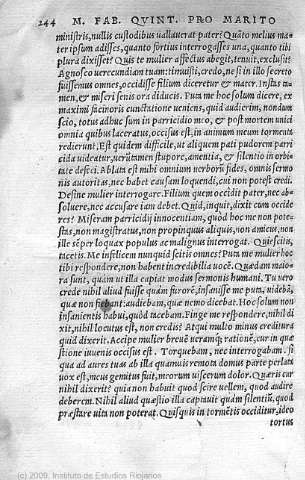 244 M. FAB. QVINT. PRO MARITO
ministris, nullis custodibus uallauerat pater? Quãto melius ma
ter ipsum adisses, quanto fortius interrogasses una, quanto tibi
plura dixisset? Quis te mulier affectus abegit, tenuit, exclusit?
Agnosco uerecundiam tuam: timuisti, credo, ne si in illo secreto
fuissemus omnes, occidisse filium diceretur & mater. Instas ta-
men, & miseri senis ora diducis. Puta me hoc solum dicere, ex
maximi facinoris cunctatione ueniens, quid audierim, nondum
scio, totus adhuc sum in parricidio meo, & post mortem unici
omnia quibus laceratus, occisus est, in animum meum tormenta
redierunt. Est quidem difficile, ut aliquem pati pudorem parri
cida uideatur, ueruntamen stupore, amentia, & silentio in orbita
te defeci. Ablata est mihi omnium uerborũ fides. omnis sermo
nis autoritas, nec habet causam loquendi, cui non potest credi.
Desine mulier interrogare. Filium quem occidit pater, nec ab-
soluere, nec accusare iam debet. Quid, inquit, dixit cum occide
res? Miseram parricidij innocentiam, quod hoc me non pote-
stas, non magistratus, non propinquus aliquis, non amicus, non
ille sẽper loquax populus ac malignus interrogat. Qui scitis,
tacetis. Me infelicem nunquid scitis omnes? Puta me mulier hoc
tibi respondere, non habent incredibilia uocẽ. Quædam maio-
ra sunt, quàm ut illa capiat modus sermonis humani. Tu uero
crede nihil aliud fuisse quàm furorẽ, insanisse me puta, uidebã,
quæ non audiebam, quæ nemo dicebat. Hoc solum non
insanientis habui, quòd tacebam. Finge me respondere, nihil di
xit, nihil locutus est, non credis? Atqui multo minus creditura
quid dixerit. Accipe mulier breuẽ ueramq; rationẽ, cur in quæ
stione iuuenis occisus est. Torquebam, nec interrogabam. si
qua ad aures tuas ab illa quamuis remota domus parte perlata
uox est, meus gemitus fuit, meorum uiscerum dolor. Quæris cur
nihil dixerit? quia non habuit quod scire uellem, quod audire
deberem. Nihil aliud quæstio illa captauit quàm silentiũ, quod
præstare uita non poterat. Quisquis in tormẽtis occiditur, ideo
tortus
(c) 2009, Instituto de Estudios Riojanos